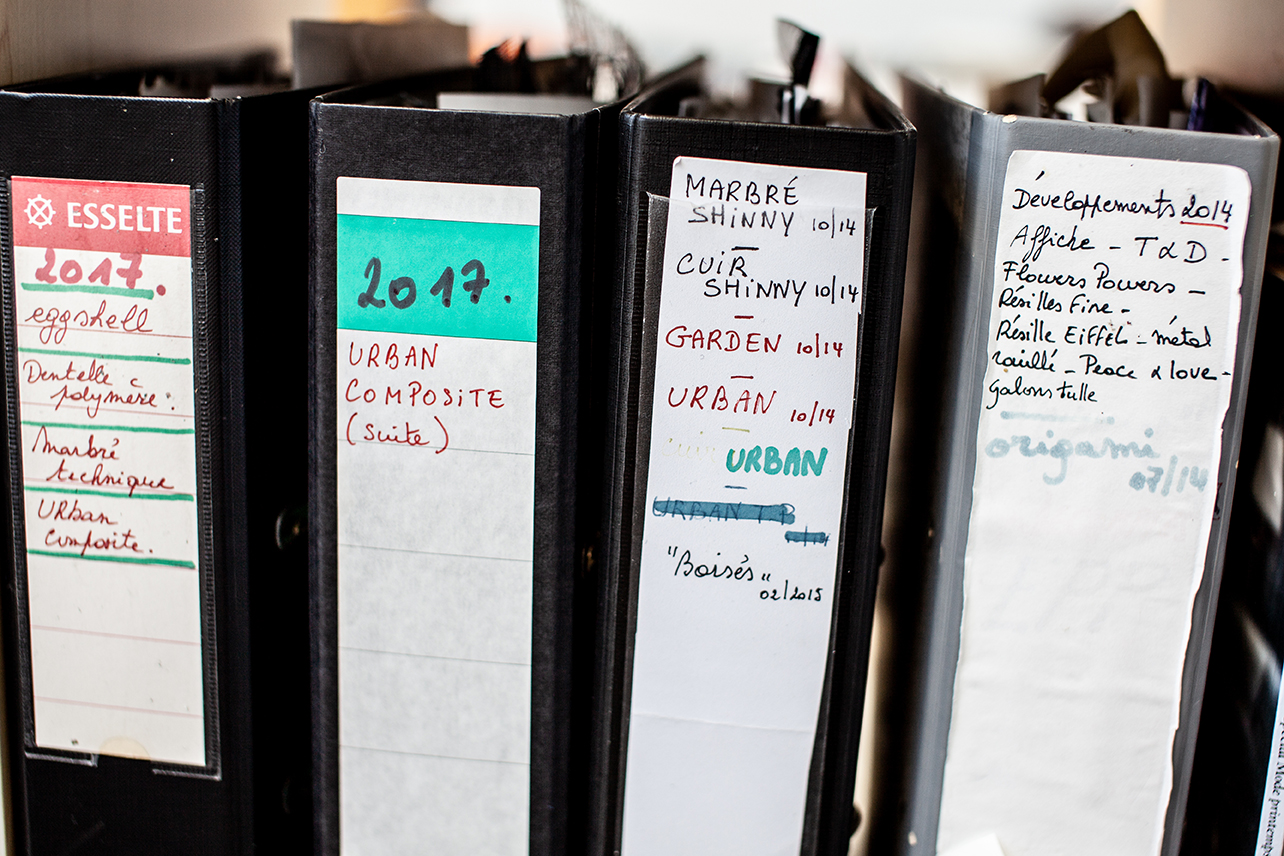 ESSELTE
2017.
eggshell
Dentelle &
polymère.
Marbré
technique
Urban
Composite.
2017.
URBAN
COMPOSITE
(Suite)
MARBRÉ
SHINNY 10/14
CUIR
SHINNY 10/14
GARDEN 10/14
URBAN 10/14
URBAN
"Boisés"
02/2015
Développements 2014
Affiche - T & D -
Flowers Powers -
Résilles Fine -
Résille Eiffel - métal
rouillé - Peace & love -
galons tulle
origami
07/14